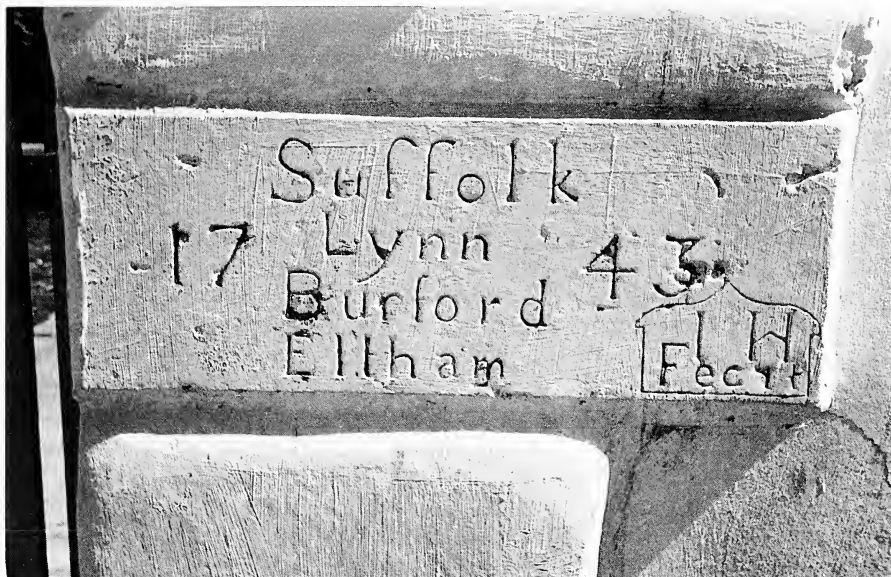 Suffolk
17 Lynn 43
Burford
Eltham
IH
Fecit